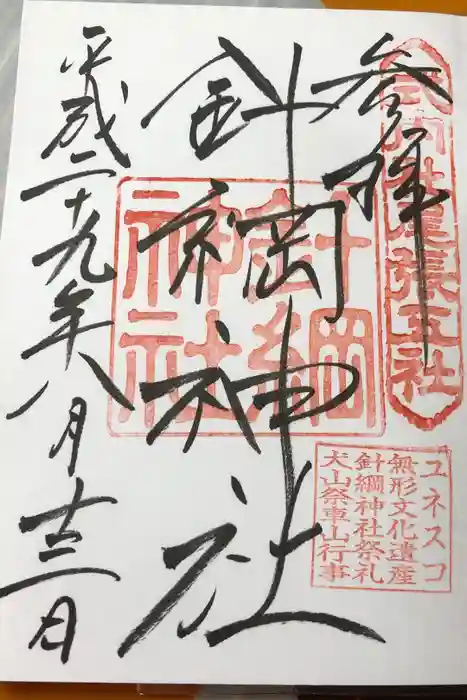 参拝
式内社尾張五社
針綱神社
針綱神社
平成二十九年八月十三日
ユネスコ
無形文化遺産
針綱神社祭礼
犬山祭車山行事